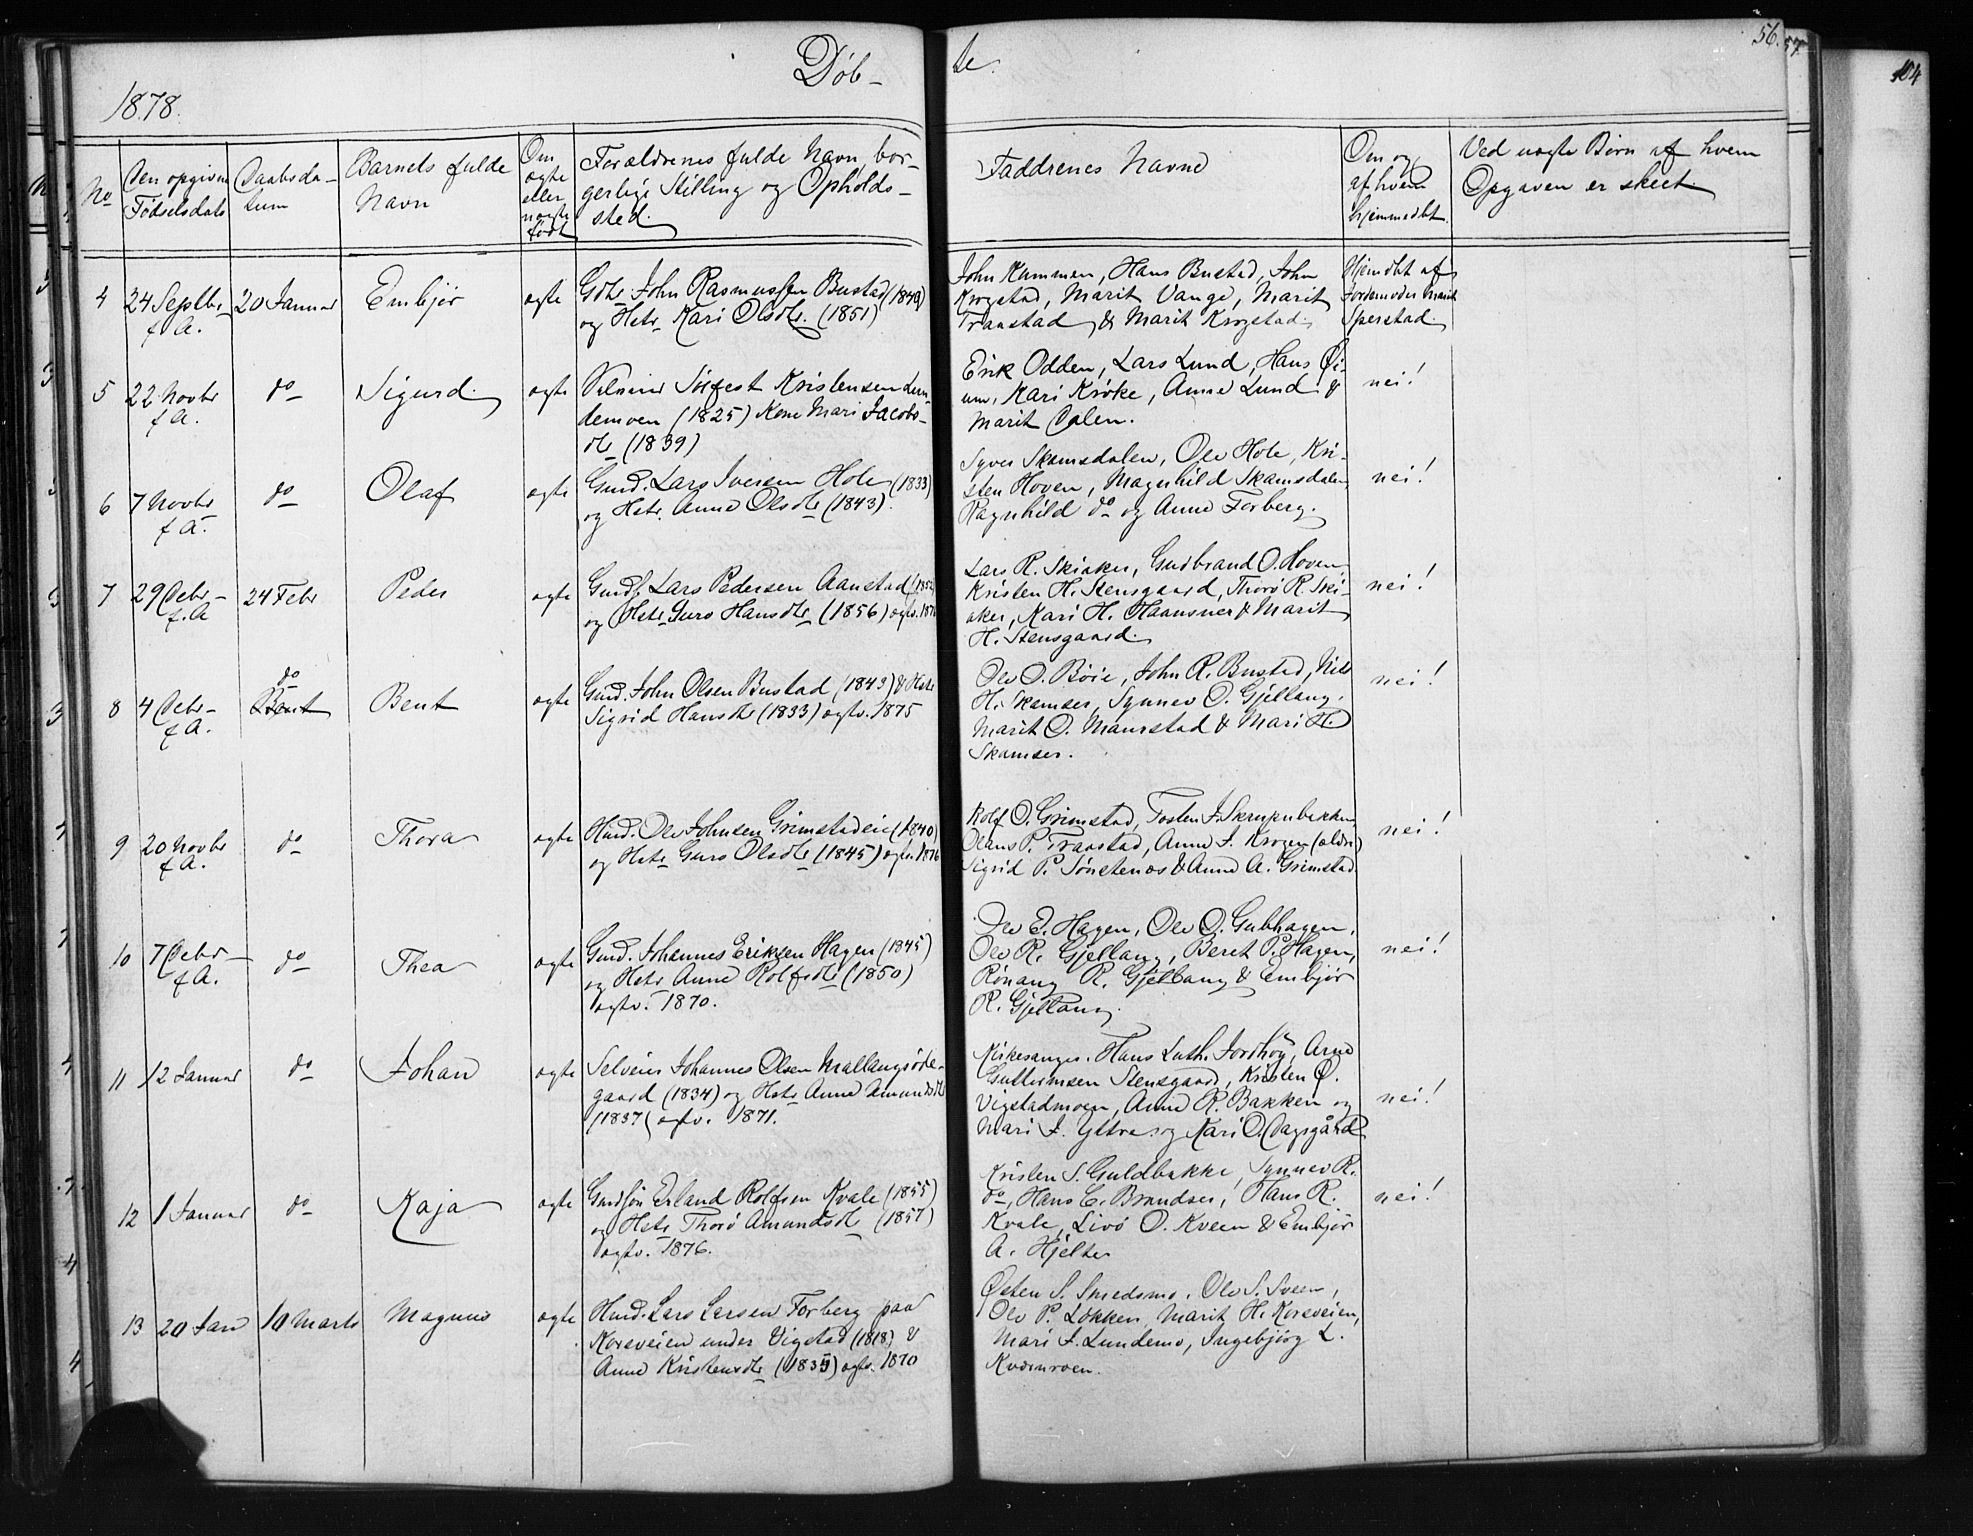 Døb-
te.
56.
57
104
1878.
No
Den opgivne
Fødselsdato
Daabsda-
tum
Barnets fulde
Navn
Om
ægte
eller
uægte
født
Forældrenes fulde Navn, bor-
gerlige Stilling og Opholds-
sted.
Faddrenes Navne
Om og
af hvem
hjemmedbt.
Ved uægte Børn af hvem
Opgaven er skeet.
4 24 Septbr f A. 20 Januar Embjør ægte
Gdbr. John Rasmussen Bustad (1849)
og Hstr Kari Olsdtr. (1851)
John Kummen, Hans Bustad, John
Krogstad, Marit Vange, Marit
Traastad & Marit Krogstad.
Hjemdbt af
Jordemoder Marit
Sperstad.
5 22 Novbr f A. do Sigurd ægte
Selveier Sylfest Kristensen Lun-
demoen (1825) Kone Mari Jacobs-
dtr (1839)
Erik Odden, Lars Lund, Hans Øi-
um, Kari Krøke, Anne Lund &
Marit Dalen.
nei!
6 7 Novbr f A. do Olaf ægte
Gmd. Lars Iversen Hole (1833)
og Hstr. Anne Olsdtr (1843).
Syver Skamsdalen, Ole Hole, Kri-
sten Hoven, Magnhild Skamsdalen,
Ragnhild do og Anne Forberg.
nei!
7 29 Decbr f. A 24 Febr Peder ægte
Gmd. Lars Pedersen Aanstad (1852)
og Hstr Guro Hansdtr (1856) ægtv. 187
Lars R. Skiaker, Gudbrand O. Hoven
Kristen H. Stensgaard, Thorø R. Ski-
aker, Kari H. Haansnes & Marit
H. Stensgaard.
nei!
8 4 Decbr f A. do Bent Bent ægte
Gmd. John Olsen Bustad (1843) & Hstr
Sigrid Hansdtr (1833) ægtv. 1875
Ole O. Böie, John R. Bustad, Nils
H. Skamser, Synnev O. Gjeilang,
Marit O. Maurstad & Mari H.
Skamser.
nei!
9 20 Novbr f A. do Thora ægte
Husd. Ole Johnsen Grimstadeie (1840)
og Hstr Guro Olsdtr (1845) ægtv. 1876
Rolf O. Grimstad, Tosten J. Skrupubakken
Olaus P. Traastad, Anne J. Krogen (ældre)
Sigrid P. Sønstenæs & Anne A. Grimstad.
nei!
10 7 Decbr f A. do Thea ægte
Gmd. Johannes Eriksen Hagen (1845)
og Hstr Anne Rolfsdtr (1850)
ægtv. 1870.
Ole E. Hagen, Ole O. Gubhagen,
Ole R. Gjeilang, Beret P. Hagen,
Rønaug R. Gjeilang & Embjør
R. Gjeilang.
nei!
11 12 Januar do Johan ægte
Selveier Johannes Olsen Mallangsøde-
gaard (1834) og Hstr Anne Amundsdtr
(1837) ægtv. 1871.
Kirkesanger Hans Luth. Jordhøy, Arne
Guttormsen Stensgaard, Kristen O.
Vigstadmoen, Anne R. Bakken og
Mari J. Yttre og Kari O. Dagsgård
nei!
12 1 Januar do Kaja ægte
Gmdsøn Erland Rolfsen Kvale (1855)
og Hstr Thorø Amundsdtr (1857)
ægtv. 1876.
Kristen S. Guldbakke, Synnev R.
do, Hans E. Brandser, Hans R.
Kvale, Livø O. Kveen & Embjør
A. Hjelter
nei!
13 20 Jan 10 Marts Magnus ægte
Husd. Lars Larsen Forberg paa
Korsveien under Vigstad (1818) &
Anne Kristensdtr (1835) ægtv. 1870
Østen S. Smedsmo, Ole S. Sveen,
Ole P. Løkken, Marit H. Korsveien,
Mari J. Lundemo, Ingebjørg L.
Kværnroen.